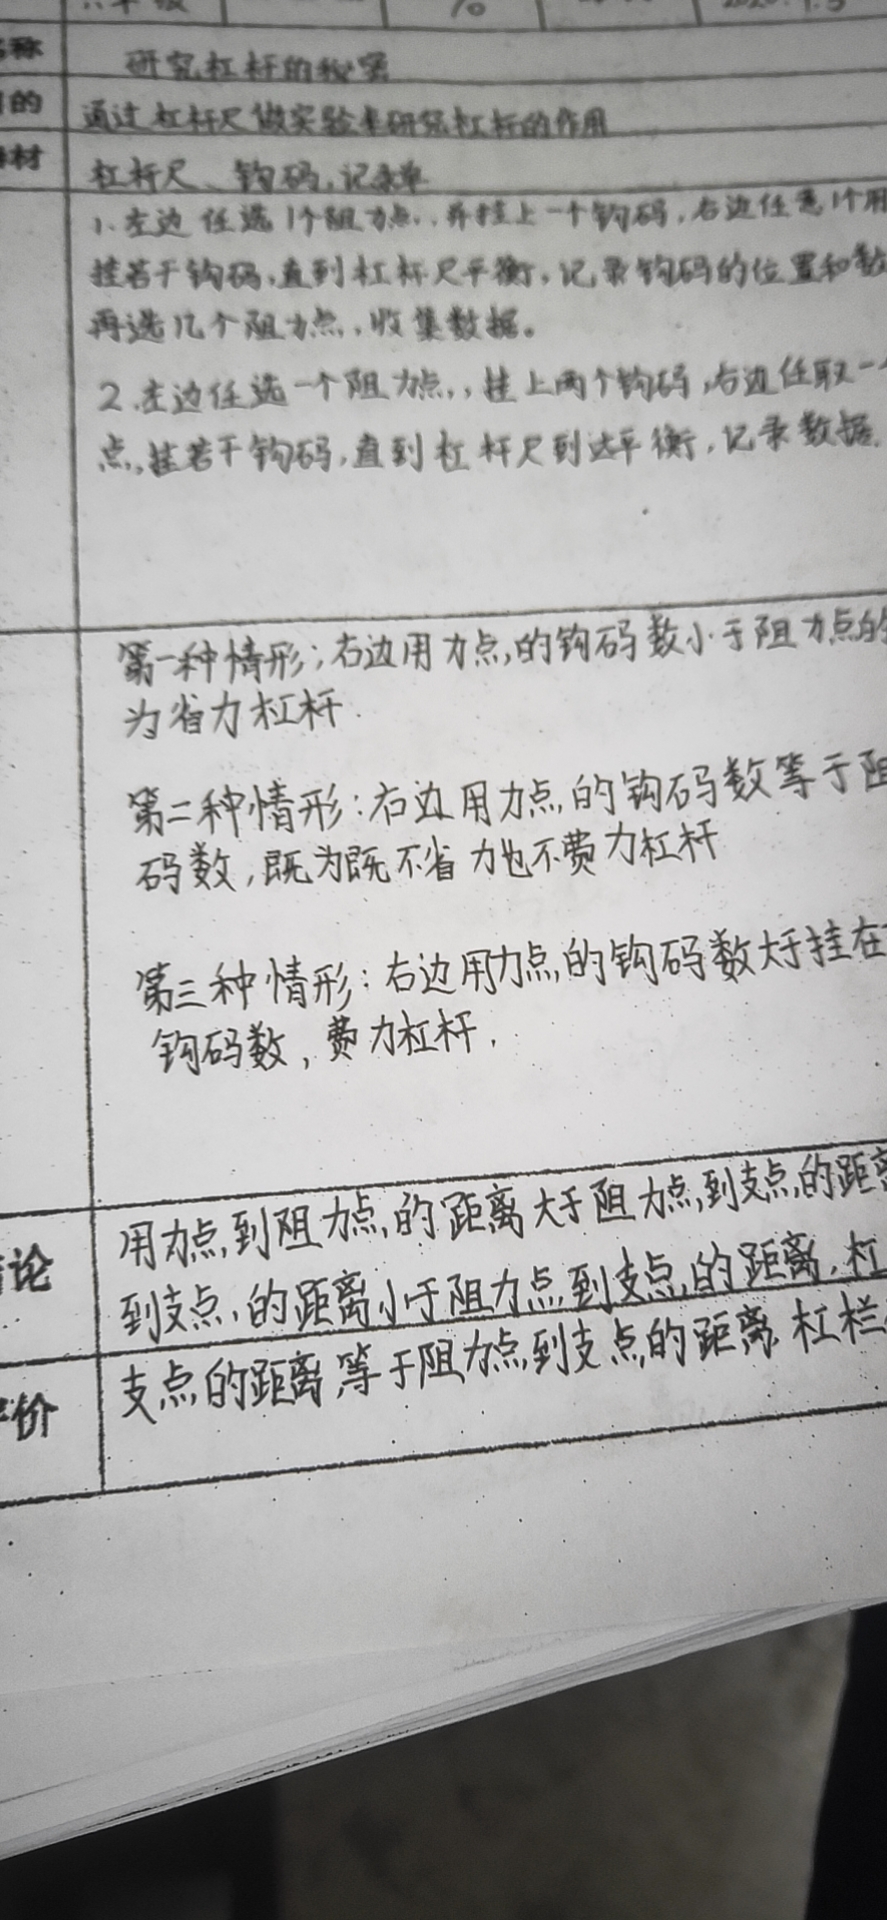 六年级
10
名称 研究杠杆的秘密
目的 通过杠杆尺做实验来研究杠杆的作用
器材 杠杆尺、钩码,记录单
1.左边任选1个阻力点,并挂上一个钩码,右边任意1个用
挂若干钩码,直到杠杆尺平衡,记录钩码的位置和数
再选几个阻力点,收集数据。
2.左边任选一个阻力点,挂上两个钩码,右边任取一个
点,挂若干钩码,直到杠杆尺到达平衡,记录数据.
第一种情形;右边用力点的钩码数小于阻力点的钩
为省力杠杆.
第二种情形:右边用力点的钩码数等于阻
码数,既为既不省力也不费力杠杆
第三种情形:右边用力点的钩码数大于挂在
钩码数,费力杠杆.
结论 用力点到阻力点的距离大于阻力点到支点的距离
到支点的距离小于阻力点到支点的距离,杠
评价 支点的距离等于阻力点到支点的距离 杠栏